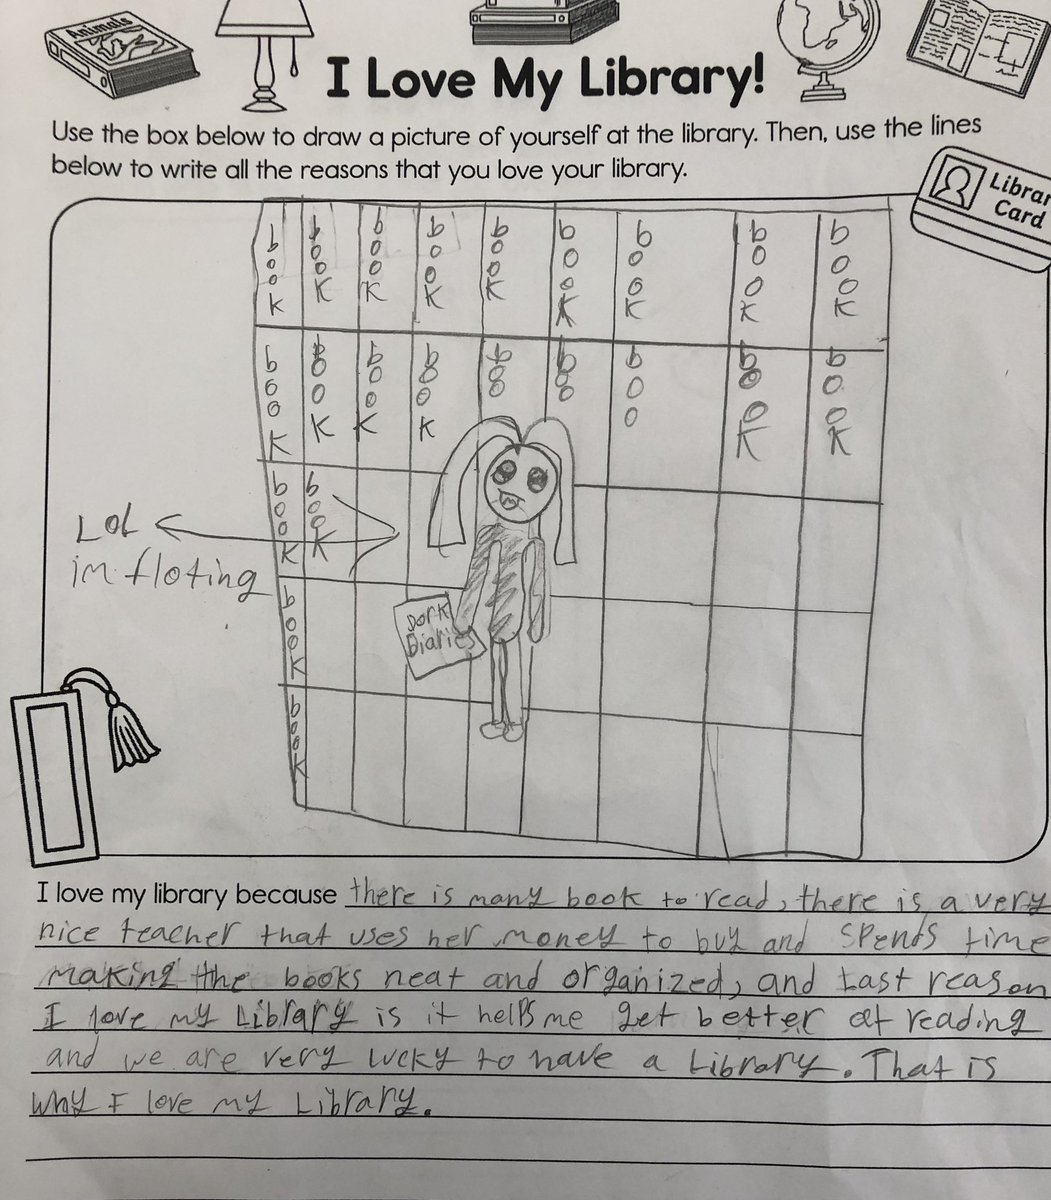 Animals
I Love My Library!
Use the box below to draw a picture of yourself at the library. Then, use the lines
below to write all the reasons that you love your library.
Library
Card
book book book book book book book book book
book book book book boo boo boo book book
book book
LoL
im floting
book
Dork
Diaries
book
I love my library because there is many book to read, there is a very
nice teacher that uses her money to buy and spends time
making the books neat and organized, and Last reason
I love my Library is it helps me get better at reading
and we are very lucky to have a Library. That is
why I love my Library.